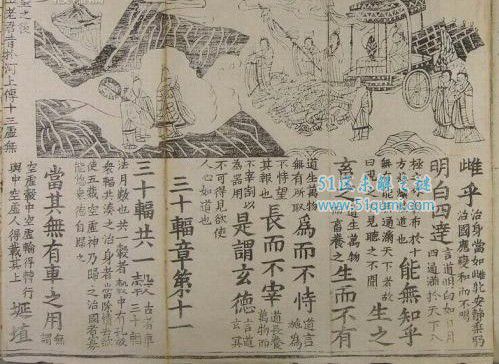 雌乎 治身當如雌牝安靜柔弱治國應變和而不唱
明白四達 言道明白如日月四通滿於天下八
布於十方 能無知乎
無 能 道滿於天下者故曰視之不見聽之不聞 生之
畜之 道生萬物而畜養之 生而不有
道生萬物無所取有 為而不恃 道所施為
不恃望其報也 長而不宰 道長養萬物而
不宰割以為器用 是謂玄德 言道
不可得見欲使人心如道也
三十輻章第十一
三十輻共一 古者車三十輻
法月數也共一轂者轂中有孔故衆輻共湊之治身者當除情去欲
使五藏空虛神乃歸之治國者寡能
當其無有車之用 無謂
空虛轂中空虛輪得轉行輿中空虛人得載其上 埏埴
河上傳十三虛無
未解之谜
www.51qumi.com